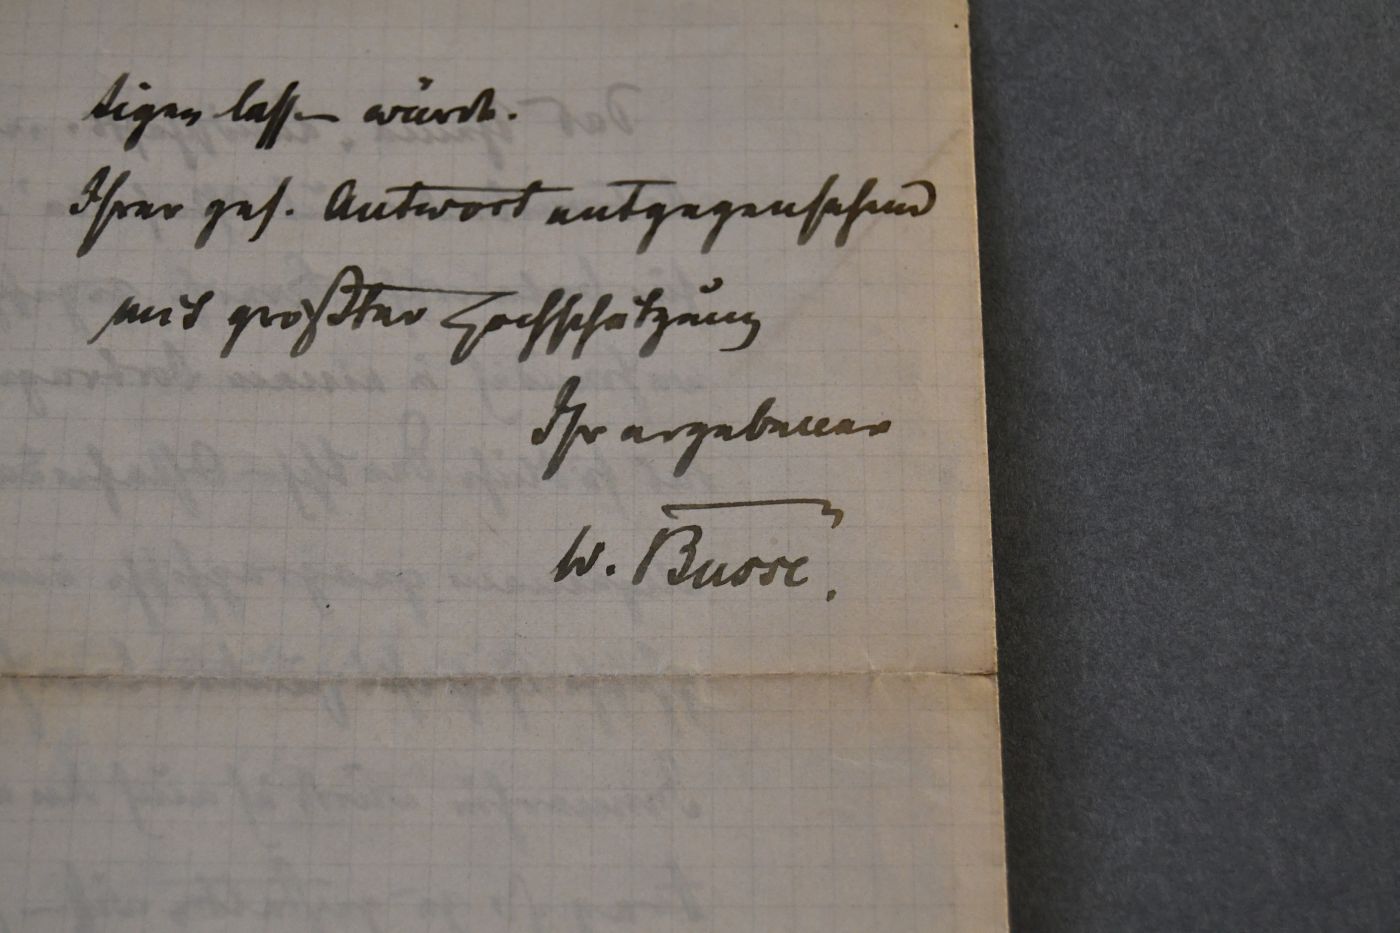 tigen lassen würde.
Ihrer gef. Antwort entgegensehend
mit größter Hochschätzung
Ihr ergebener
W. Busse.